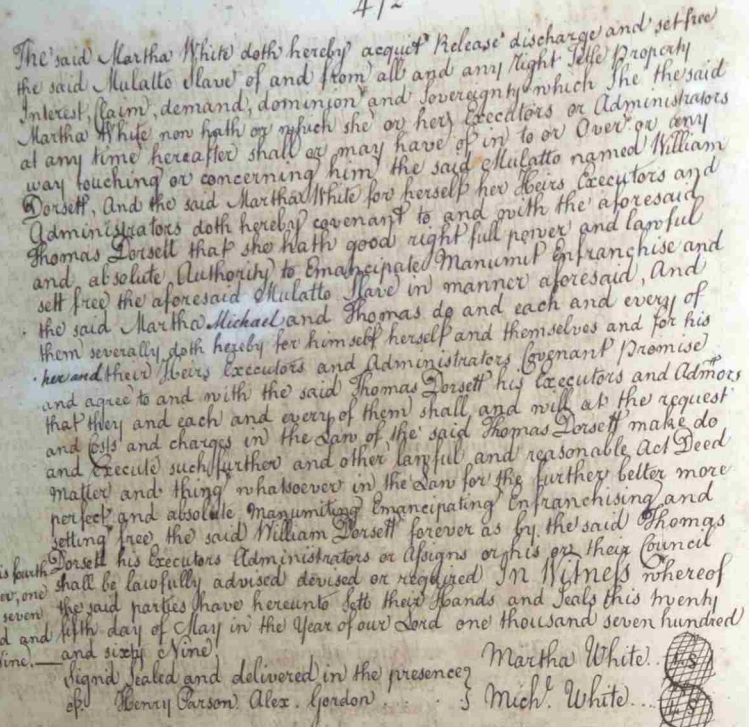 472
The said Martha White doth hereby acquit Release discharge and set free
the said Mulatto Slave of and from all and any Right Title Property
Interest, Claim, demand, dominion and Sovereignty which She the said
Martha White now hath or which she or her Executors or Administrators
at any time hereafter shall or may have of in to or Over or any
way touching or concerning him the said Mulatto named William
Dorsett, And the said Martha White for herself her Heirs Executors and
Administrators doth hereby covenant to and with the aforesaid
Thomas Dorsett that she hath good right full power and lawful
and absolute Authority to Emancipate Manumit Enfranchise and
sett free the aforesaid Mulatto Slave in manner aforesaid, And
the said Martha Michael and Thomas do and each and every of
them severally doth hereby for himself herself and themselves and for his
her and their Heirs Executors and Administrators Covenant Promise
and agree to and with the said Thomas Dorsett his Executors and Admors
that they and each and every of them shall and will at the request
and Costs and charges in the Law of the said Thomas Dorsett make do
and Execute such further and other lawful and reasonable Act Deed
Matter and thing whatsoever in the Law for the further better more
perfect and absolute Manumiting Emancipating Enfranchising and
setting free the said William Dorsett forever as by the said Thomas
Dorsett his Executors Administrators or Assigns or his or their Council
shall be lawfully advised devised or required In Witness whereof
the said parties have hereunto Sett their Hands and Seals this twenty
fifth day of May in the Year of our Lord one thousand seven hundred
and sixty Nine
Signd Sealed and delivered in the presence
of Henry Parson Alex. Gordon
Martha White .. LS
Michl. White ... LS
is fourth
one
seven
d and
ine.